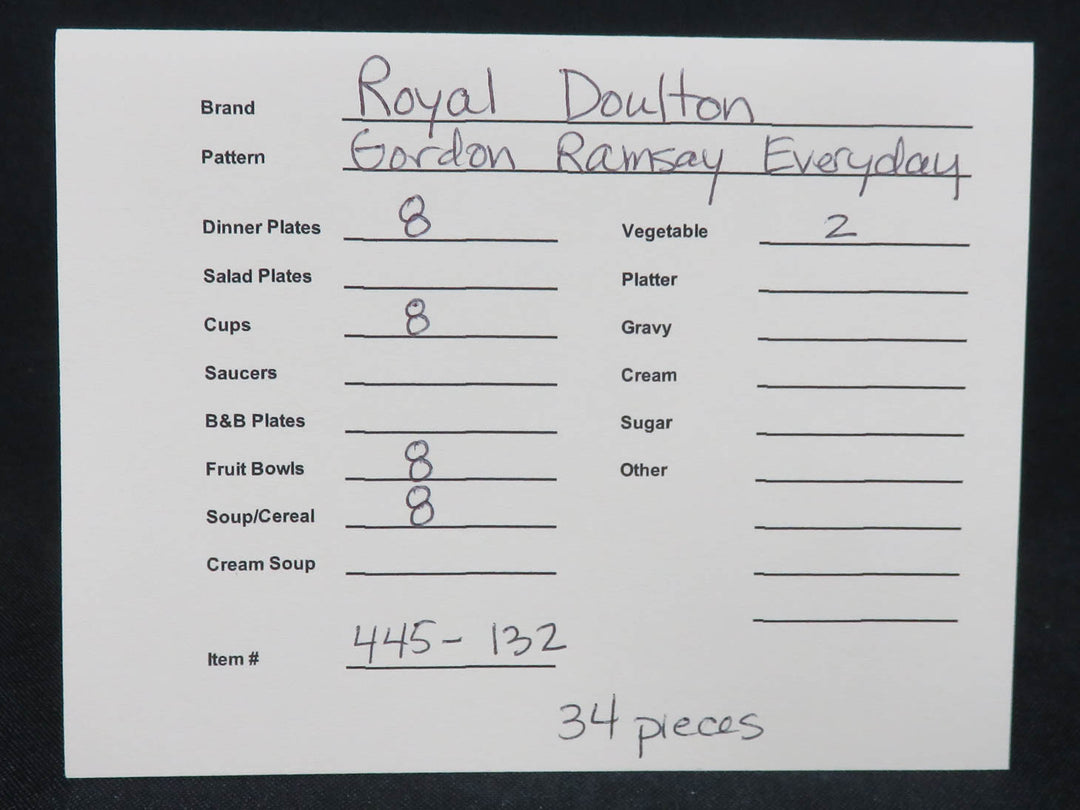 Brand Royal Doulton
Pattern Gordon Ramsay Everyday
Dinner Plates 8
Salad Plates
Cups 8
Saucers
B&B Plates
Fruit Bowls 8
Soup/Cereal 8
Cream Soup
Vegetable 2
Platter
Gravy
Cream
Sugar
Other
Item # 445-132
34 pieces